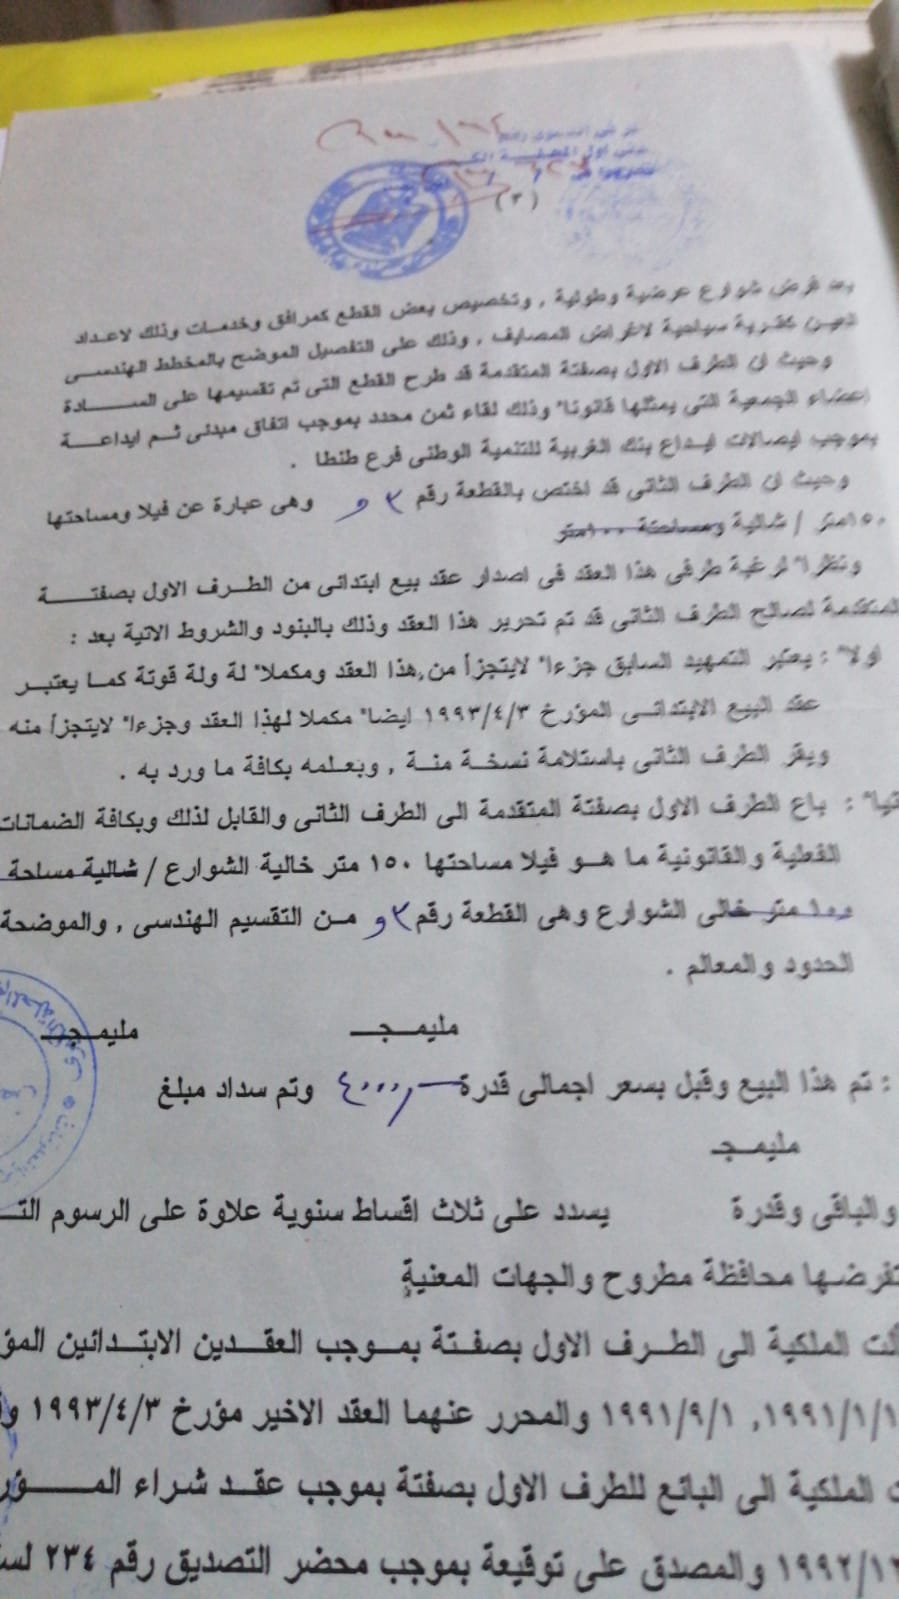 (٢)
بعد فرض شوارع عرضية وطولية , وتخصيص بعض القطع كمرافق وخدمات وذلك لاعداد
العين كقرية سياحية لاغراض المصايف , وذلك على التفصيل الموضح بالمخطط الهندسى
وحيث ان الطرف الاول بصفتة المتقدمة قد طرح القطع التى تم تقسيمها على الســادة
اعضاء الجمعية التى يمثلها قانونا" وذلك لقاء ثمن محدد بموجب اتفاق مبدئى ثم ايداعة
بموجب ايصالات ايداع بنك الغربية للتنمية الوطنى فرع طنطا .
وحيث ان الطرف الثانى قد اختص بالقطعة رقم ٣ و وهى عبارة عن فيلا ومساحتها
١٥٠متر / شالية ومساحتة ١٠٠متر
ونظرا" لرغبة طرفى هذا العقد فى اصدار عقد بيع ابتدائى من الطرف الاول بصفتــة
المتقدمة لصالح الطرف الثانى قد تم تحرير هذا العقد وذلك بالبنود والشروط الاتية بعد :
اولا" : يعتبر التمهيد السابق جزءا" لايتجزأ من هذا العقد ومكملا" لة ولة قوتة كما يعتبـر
عقد البيع الابتدائـى المؤرخ ١٩٩٣/٤/٣ ايضا" مكملا لهذا العقد وجزءا" لايتجزأ منه
ويقر الطرف الثانى باستلامة نسخـة منـة , وبعلمه بكافة ما ورد به .
نيا" : باع الطرف الاول بصفتة المتقدمة الى الطرف الثانى والقابل لذلك وبكافة الضمانات
الفعلية والقانونية ما هـو فيلا مساحتها ١٥٠ متر خالية الشوارع / شالية مساحة
١٠٠ متر خالى الشوارع وهى القطعة رقم ٣ و مـن التقسيم الهندسى , والموضحة
الحدود والمعالم .
مليمـجـ مليمـجـ
: تم هذا البيع وقبل بسعر اجمالى قدرة ٤٠٠٠ وتم سداد مبلغ
مليمـجـ
والباقى وقدرة يسدد على ثلاث اقساط سنوية علاوة على الرسوم التـ
تفرضـها محافظة مطروح والجهات المعنية
الت الملكية الى الطـرف الاول بصفـتة بمـوجب العقـدين الابتـدائين المؤ
١٩٩١/١/١, ١٩٩١/٩/١ والمحرر عنهما العقد الاخير مؤرخ ١٩٩٣/٤/٣ و
ت الملكية الى البائع للطرف الاول بصفتة بموجب عقـد شـراء المـــؤر
١٩٩٢/١٢ والمصدق على توقيعة بموجب محضر التصديق رقم ٢٣٤ لس